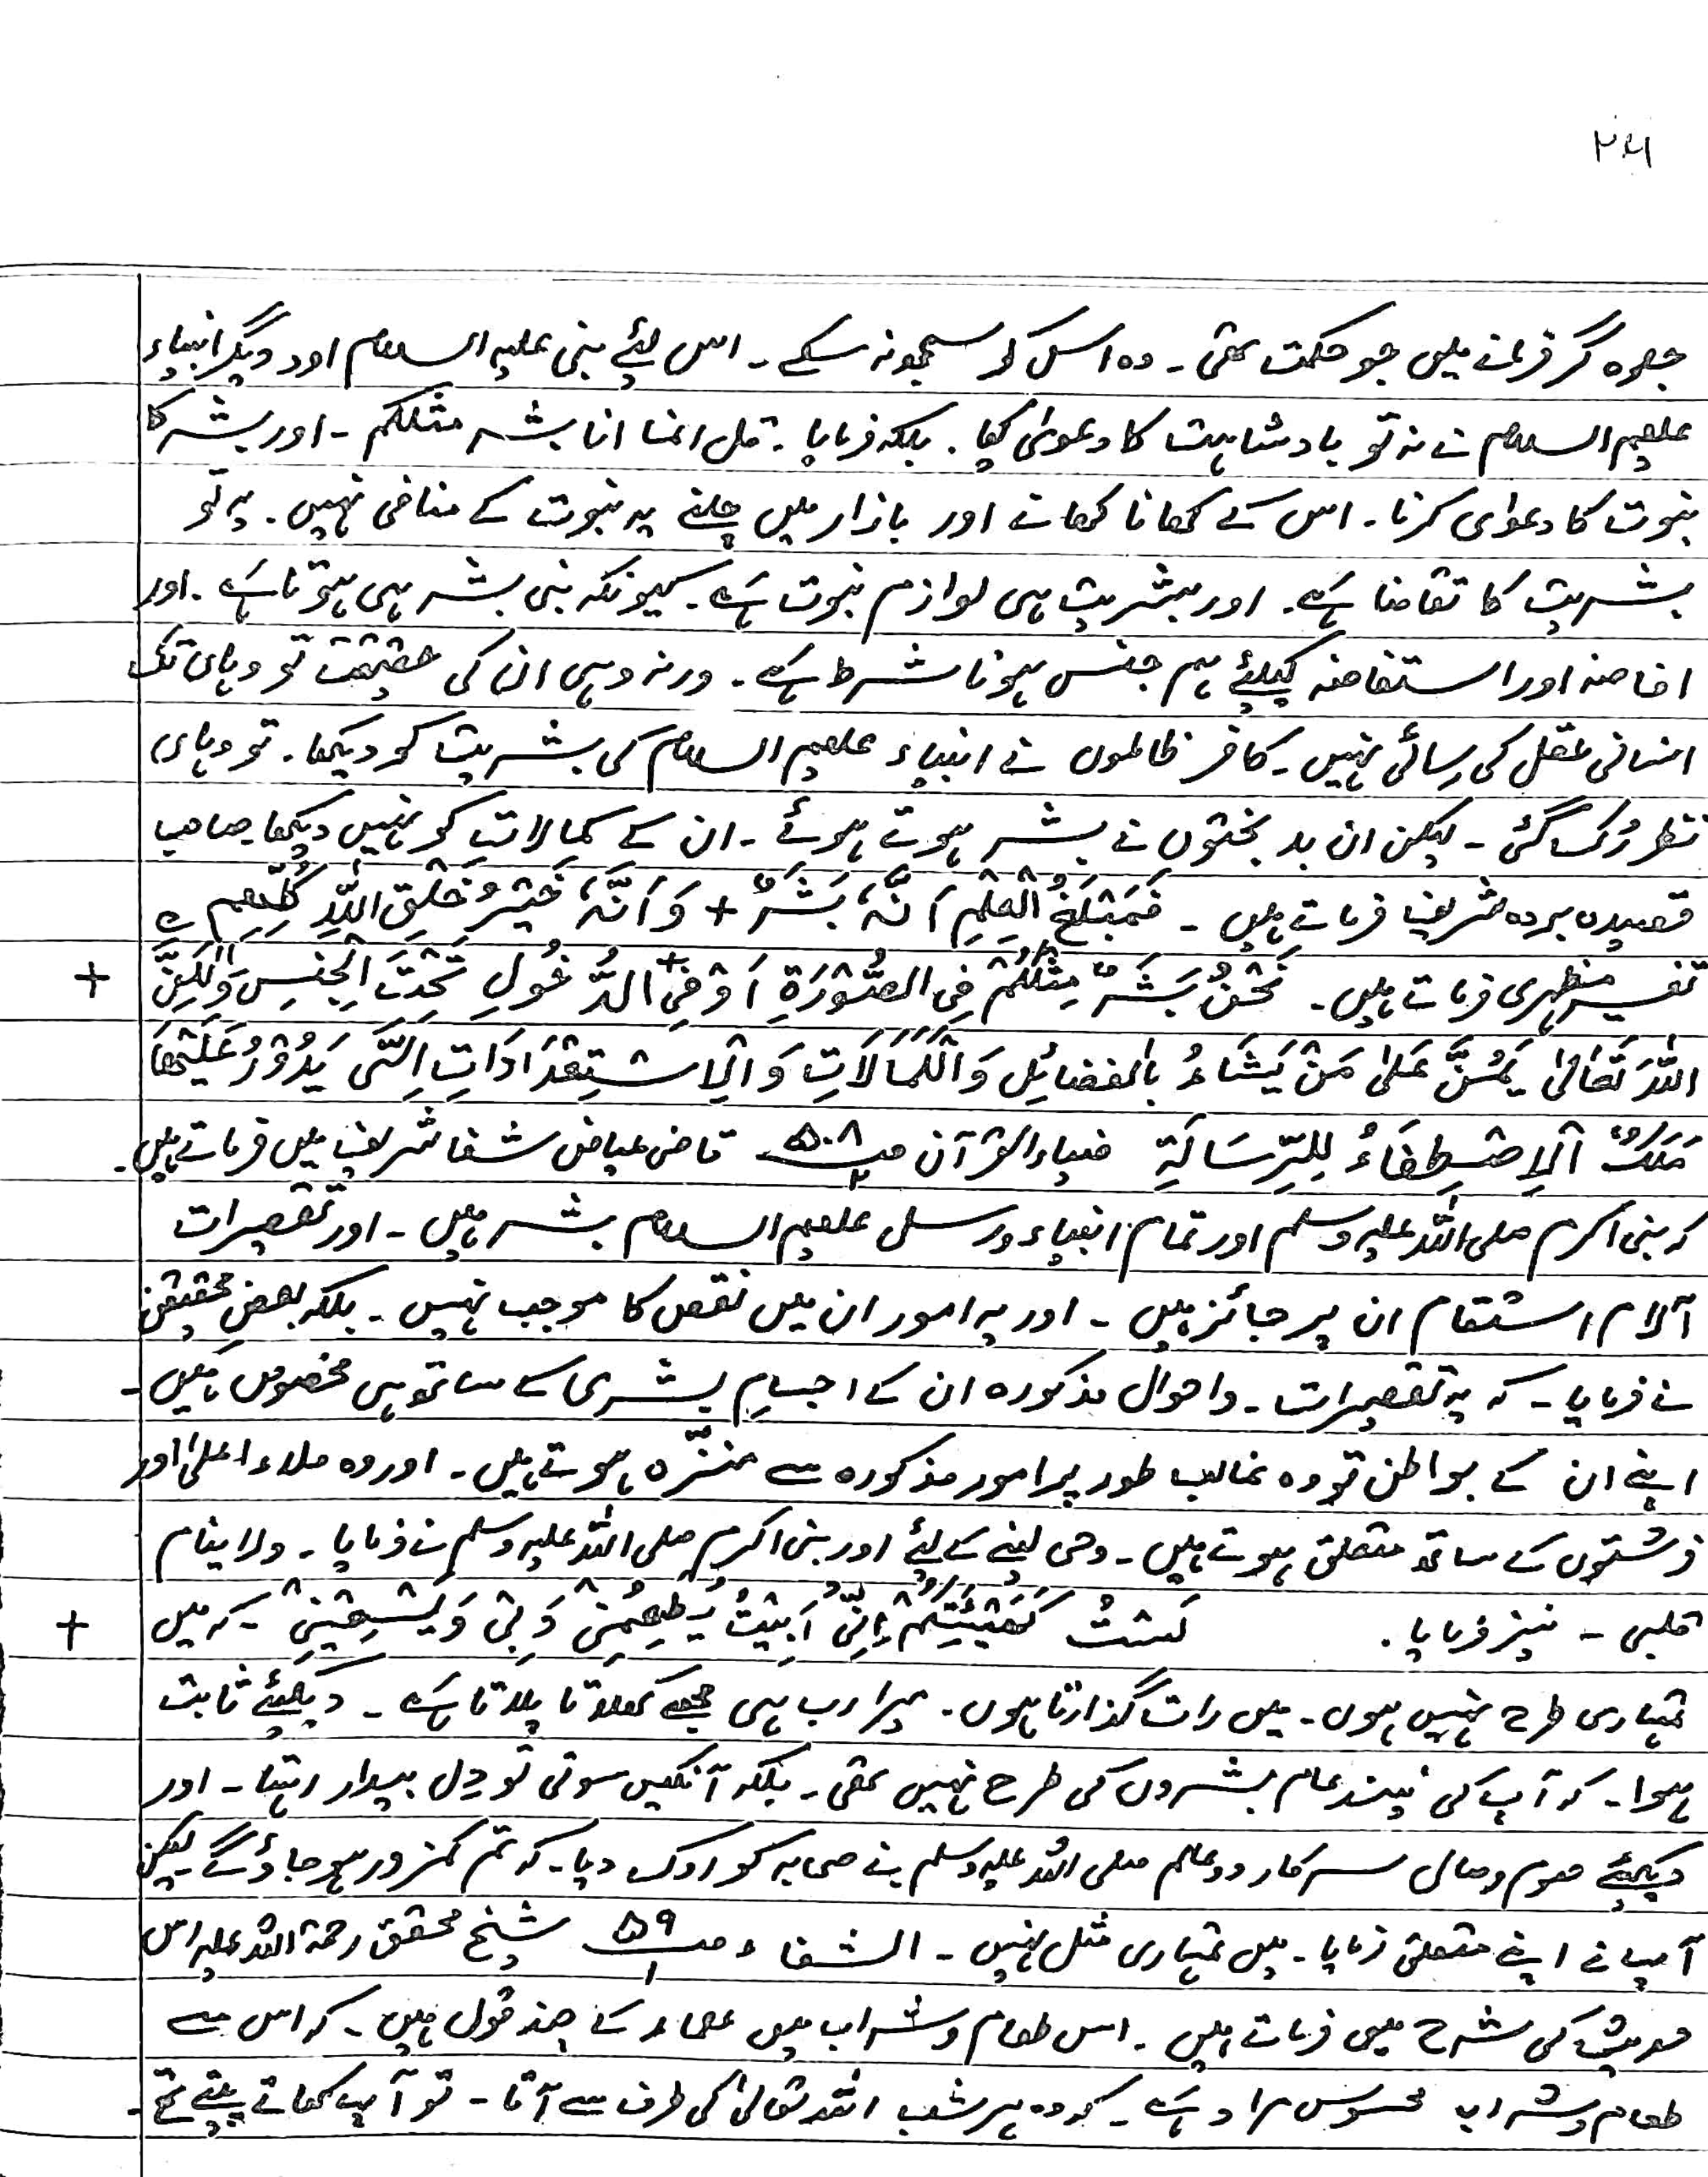 ۲۴
جلوہ گر فرمانے میں جو حکمت تھی۔ وہ اس کو سمجھ نہ سکے۔ اس لئے نبی علیہ السلام اور دیگر انبیاء
علیھم السلام نے نہ تو بادشاہت کا دعویٰ کیا۔ بلکہ فرمایا۔ قل انما انا بشر مثلکم۔ اور بشر کا
نبوت کا دعوای کرنا۔ اس کے کھانا کھانے اور بازار میں چلنے یہ نبوت کے منافی نہیں۔ یہ تو
بشریت کا تقاضا ہے۔ اور بشریت ہی لوازم نبوت ہے۔ کیونکہ نبی بشر ہی ہوتا ہے۔ اور
افاضہ اور استفاضہ کیلئے ہم جنس ہونا شرط ہے۔ ورنہ وہی ان کی حقیقت تو وہاں تک
انسانی عقل کی رسائی نہیں۔ کافر ظالموں نے انبیاء علیھم السلام کی بشریت کو دیکھا۔ تو وہاں
نظر رُک گئی۔ لیکن ان بدبختوں نے بشر ہوتے ہوئے۔ ان کے کمالات کو نہیں دیکھا۔ صاحب
قصیدہ بردہ شریف فرماتے ہیں۔ فَمَبْلَغُ الْعِلْمِ اَنَّہٗ بَشَرٌ + وَاَنَّہٗ خَیْرُ خَلْقِ اللّٰہِ کُلِّھِم
تفسیر مظہری فرماتے ہیں۔ نَحْنُ بَشَرٌ مِثْلُکُمْ فِی الصُّوْرَۃِ اَوْ فِی + الدُّخُولِ تَحْتَ الْجِنْسِ وَلٰکِنَّ +
اللّٰہَ تَعَالٰی یَمُنُّ عَلٰی مَنْ یَشَاءُ بِالْفضَائِلِ وَالْکَمَالَاتِ وَالْاِسْتِعْدَادَاتِ الَّتِی یَدُوْرُ عَلَیْھَا
اَلْاِصْطِفَاءُ لِلرِّسَالَۃِ ضیاء القرآن صـ ۵۰۸/۲ قاضی عیاض شفا شریف میں فرماتے ہیں۔
کہ نبی اکرم صلی اللہ علیہ وسلم اور تمام انبیاء ورسل علیھم السلام بشر ہیں۔ اور تقصیرات
آلام اسقام ان پر جائز ہیں۔ اور یہ امور ان میں نقص کا موجب نہیں۔ بلکہ بعض محققین
نے فرمایا۔ کہ یہ تقصیرات۔ واحوال مذکورہ ان کے اجسامِ بشری کے ساتھ ہی مخصوص ہیں۔
اپنے ان کے بواطن تو وہ غالب طور پر امور مذکورہ سے منزّہ ہوتے ہیں۔ اور وہ ملاء اعلیٰ اور
فرشتوں کے ساتھ متعلق ہوتے ہیں۔ وحی لینے کے لئے اور نبی اکرم صلی اللہ علیہ وسلم نے فرمایا۔ ولا ینام
قلبی۔ نیز فرمایا۔ لَسْتُ کَھَیْئَتِکُمْ اِنِّیْ اَبِیْتُ یُطْعِمُنِیْ رَبِّی وَیَسْقِیْنِیْ۔ کہ میں +
تمہاری طرح نہیں ہوں۔ میں رات گذارتا ہوں۔ میرا رب ہی مجھے کھلاتا پلاتا ہے۔ دیکھئے ثابت
ہوا۔ کہ آپ کی نیند عام بشروں کی طرح نہیں تھی۔ بلکہ آنکھیں سوتی تو دِل بیدار رہتا۔ اور
دیکھئے صوم وصال سرکار دوعالم صلی اللہ علیہ وسلم نے صحابہ کو روک دیا۔ کہ تم کمزور ہو جاؤ گے لیکن
آپ نے اپنے متعلق فرمایا۔ میں تمہاری مثل نہیں۔ الشفاء صـ ۵۹/۱ شیخ محقق رحمۃ اللہ علیہ اس
حدیث کی شرح میں فرماتے ہیں۔ اس طعام وشراب میں علماء کے چند قول ہیں۔ کہ اس سے
طعام وشراب محسوس مراد ہے۔ کہ وہ ہر شب اللہ تعالیٰ کی طرف سے آتا۔ تو آپ کھاتے پیتے تھے۔